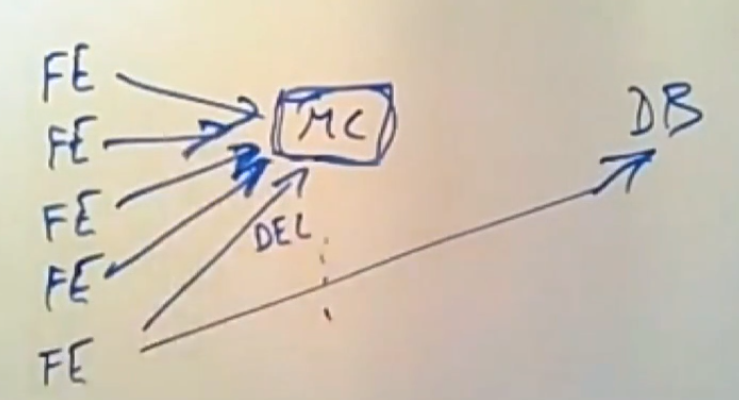 FE
FE
FE
FE
FE
MC
DEL
DB